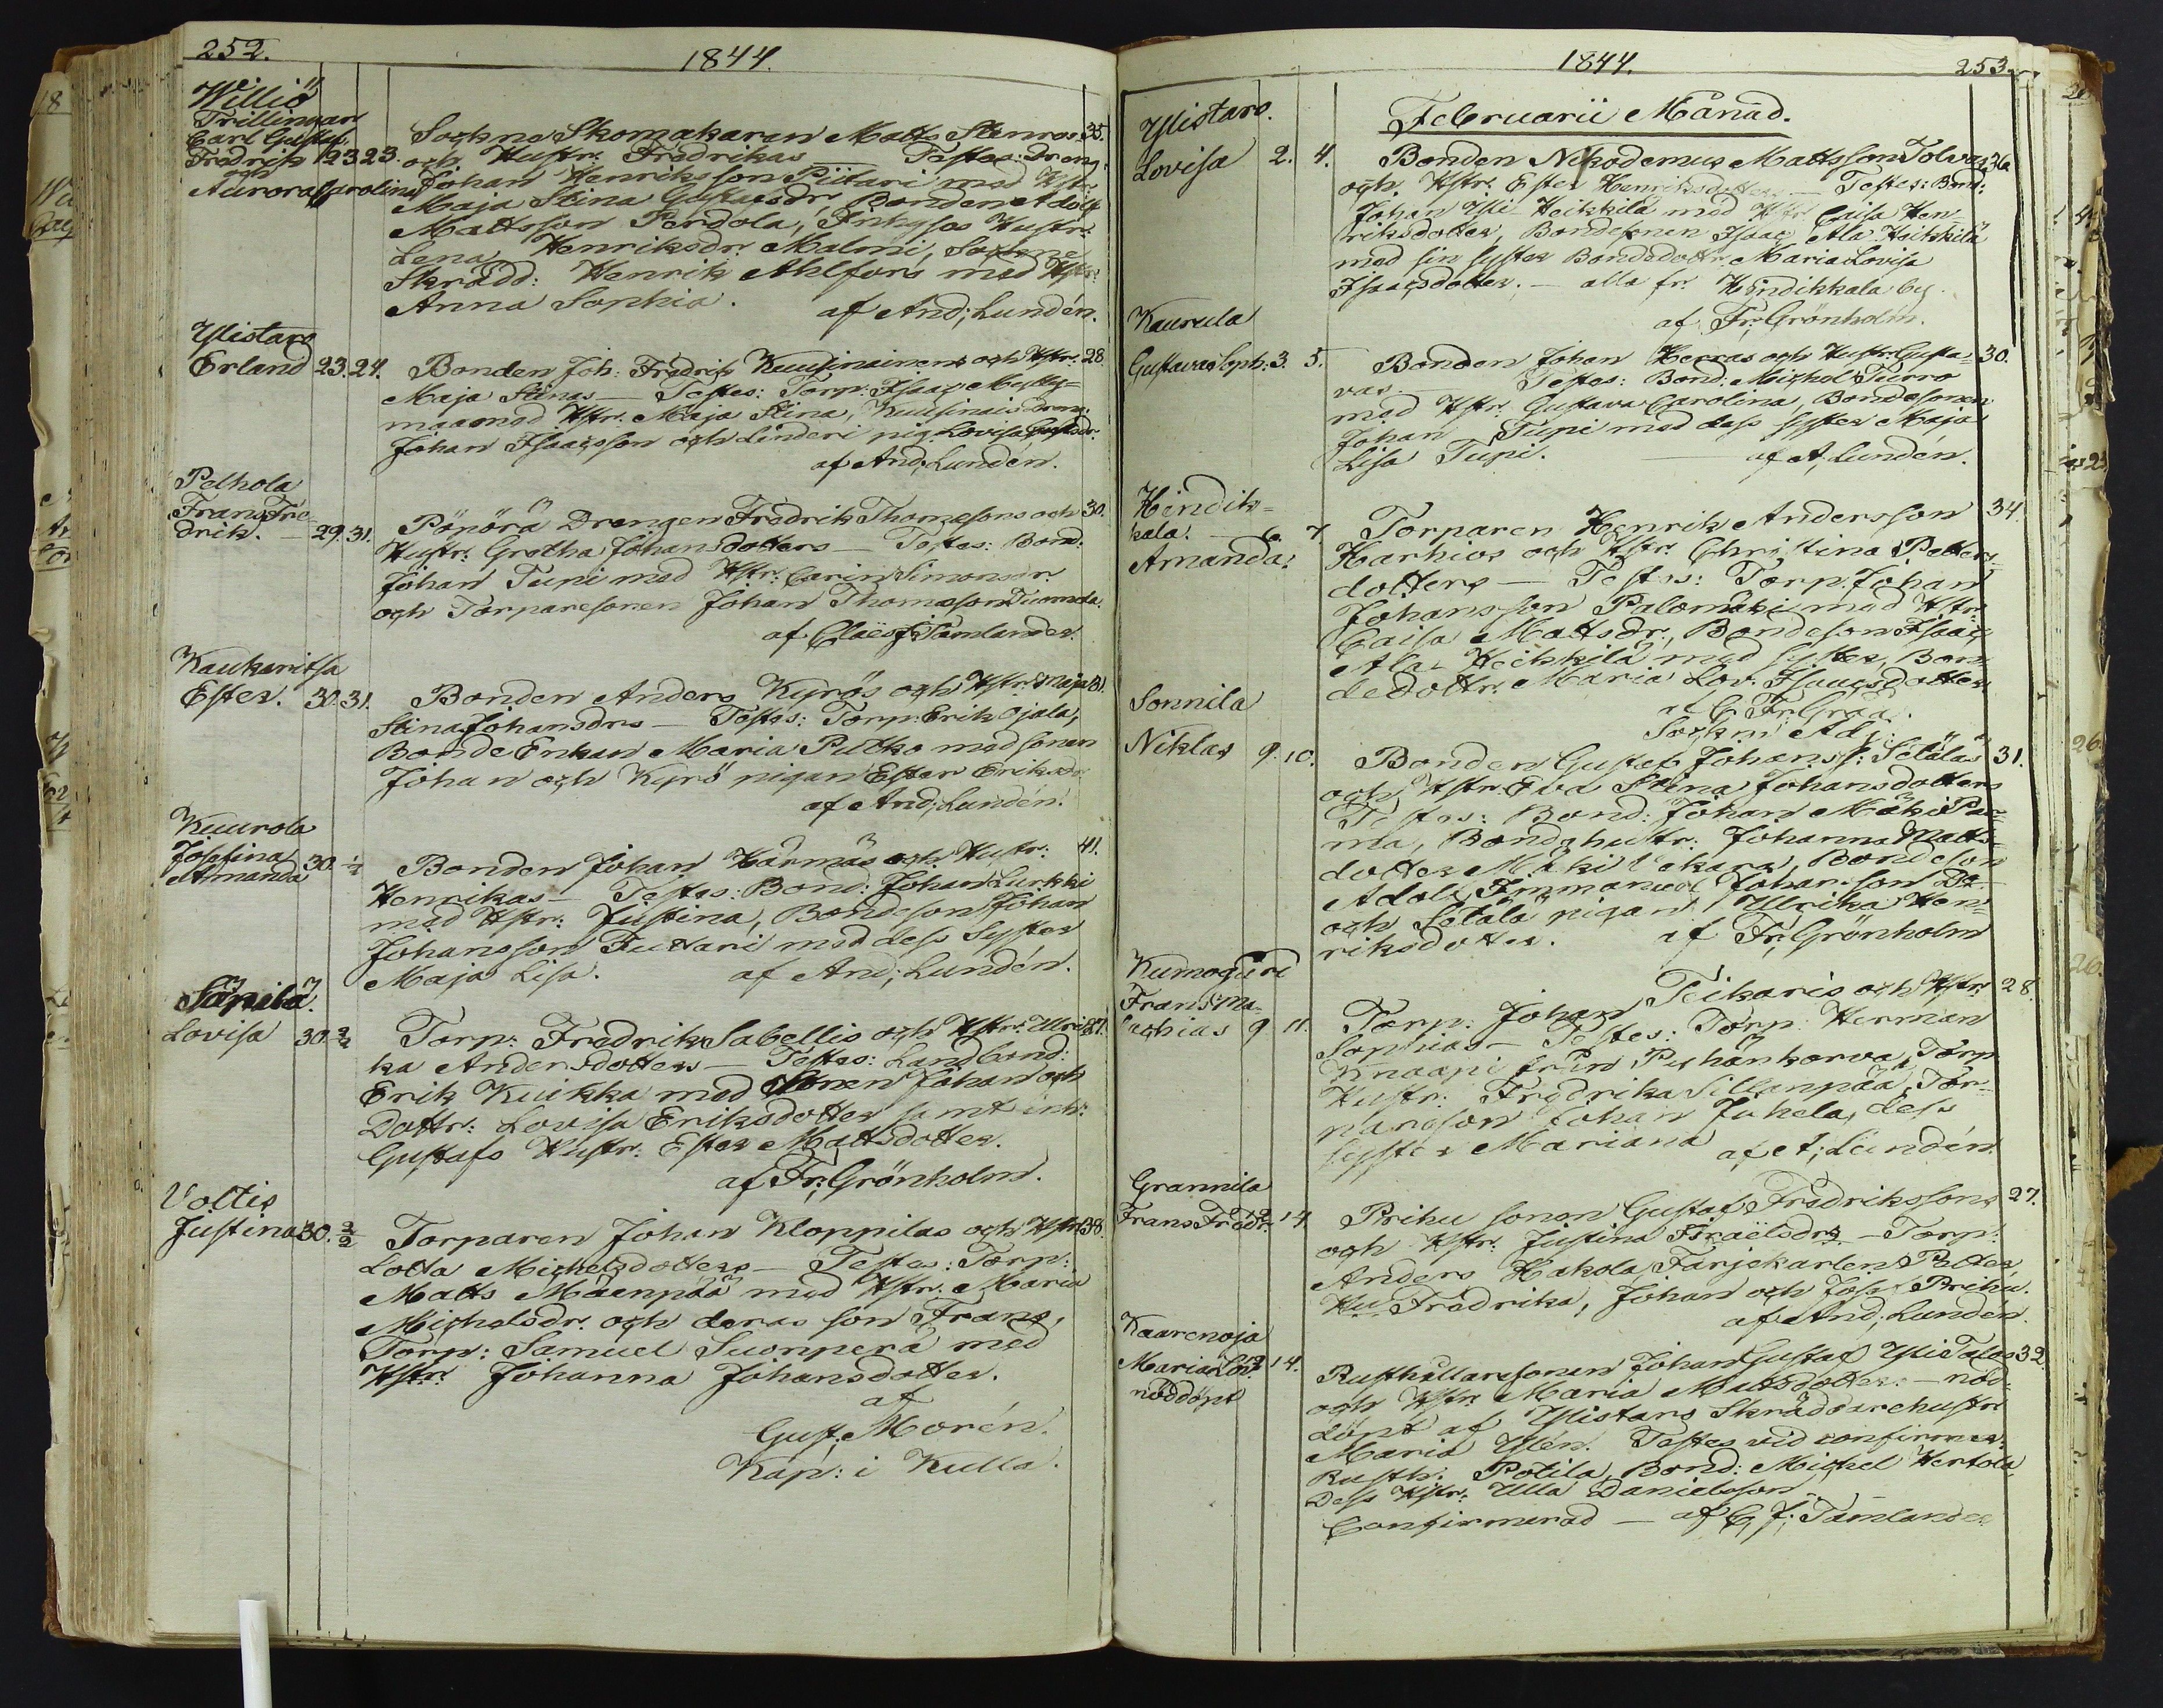 252.
1844.
Williö
Trillingar
Carl Gustaf
Fredrik 23 23.
och
Aurora Carolina
Sockne Skomakaren Matts Stenros 35.
och Hustr. Fredrikas Testes: Dreng.
Johan Henriksson Piitari med Hstr.
Maja Stina Gustafsdr Bonden Adolf
Mattsson Perdola, Inhyses Hustr.
Lena Henriksdr. Malmi, Sockne
Skrädd: Henrik Ahlfors med Hstr:
Anna Sophia. af And; Lundén.
Ylistaro
Erland 23. 24. Bonden Joh: Fredrik Kuusinainens och Hstr: 28
Maja Stinas — Testes: Torp: Isaac Mylly-
maa med Hstr. Maja Stina, Kuusinais dreng.
Johan Isaacsson och Linderi pig. Lovisa
af And; Lundén.
Pelhola
Frans Fre
drik. — 29. 31. Pönörä Drengen Fredrik Thomæsons och 30.
Hustr. Gretha Johansdotters — Testes: Bond:
Johan Tupi med Hstr: Carin Simonsdr.
och Torparesonen Johan Thomæson Tuomola.
af Claës J: Tamlander.
Kaukaritsa
Ester. 30. 31. Bonden Anders Kyrös och Hstr. Maja 31.
Stina Johansdrs — Testes: Torp: Erik Ojala,
Bonde Enkan Maria Putko med sonen
Johan och Kyrö pigan Ester Eriksdr
af And; Lundén.
Kuurola
Josefina
Amanda 30. 1/2 Bonden Johan Härmäs och Hustr: 41.
Henrikas — Testes: Bond: Johan Lurkki
med Hstr: Justina, Bondeson Johan
Johansson Tuttari med dess Syster
Maja Lisa. af And; Lundén.
Säpilä.
Lovisa 30. 2/2 Torp: Fredrik Sabellis och Hstr: Ulri 37.
ka Andersdotters — Testes: Landbond:
Erik Kuikka med Sonen Johan och
Dottr: Lovisa Eriksdotter samt inh:
Gustafs Hustr: Ester Mattsdotter.
af Fr; Grönholm.
Voltis
Justina 30. 2/2 Torparen Johan Kloppilas och Hstr. 38.
Lotta Michelsdotters — Testes: Torp:
Matts Mäenpää med Hstr. Maria
Michelsdr. och deras son Frans,
Torp: Samuel Suonperä med
Hstr. Johanna Johansdotter.
af
Gust; Morén.
Kap: i Kulla.
1844.
253.
Februarii Månad.
Ylistaro.
Lovisa 2. 4. Bonden Nikodemus Mattsson Tolvas 26
och Hstr. Ester Henriksdotters — Testes: Bond:
Johan Yli Heikkilä med Hstr Caisa Hen-
riksdotter, Bondesonen Isaac Ala Heikkilä
med sin syster Bondedottr. Maria Lovisa
Isaacsdotter. — alla fr. Hindikkala by
af Fr; Grönholm.
Kaurula
Gustava Soph: 3. 5. Bonden Johan Herras och Hustr. Gusta- 30.
vas — Testes: Bond. Michel Turro
med Hstr. Gustava Carolina, Bondesonen
Johan Tupi med dess syster Maja
Lisa Tupi. — af A; Lundén.
Hindik-
kala. — 6. 7 Torparen Henrik Andersson 34.
Amanda.
Harhios och Hstr. Christina Petters-
dotters — Testes: Torp. Johan
Johansson Palomäki med Hstr:
Caisa Mattsdr., Bondeson Isaac
Ala- Heikkilä med syster, Bon
dedottr. Maria Lov. Isaacsdotter
af C. Fr: Graa.
Sockni Adj:
Sonnila
Niklas 9. 10. Bonden Gustaf Johanss: Setälas 31.
och Hstr. Eva Stina Johansdotters
Testes: Bond: Johan Mäki Par-
ma, Bondehustr. Johanna Matts-
dotter Mäki Vekara, Bondeson
Adolf Immanuel Johansson Do-
och Setälä pigan Ulrika Hen-
riksdotter. af Fr; Grönholm
Kumogård
Frans Ma-
chias 9 11. Torp: Johan Teikaris och Hstr: 28.
Sophias — Testes: Torp: Herman
Knaapi från Puhänkorva, Torp
Hustr: Fredrika Sillanpää, Tor-
pareson Johan Juhela, dess
syster Mariana af A; Lundén.
Grannila
Frans Fredr. 14. Prihu sonen Gustaf Fredrikssons 27.
och Hstr: Justina Israëlsdrs — Torp:
Anders Hakola, Färjekarlen Petter,
Hu Fredrika, Johan och Josef Prihu.
af And; Lundén.
Kaarenoja
Maria Lov. 14. Rusthållaresonen Johan Gustaf Yli Talas 32.
nöddöpt
och Hstr. Maria Mattsdotter. — nöd-
döpt af Ylistaro Skräddarehustr
Maria Ylén. Testes vid confirmer.
Rusth: Potila, Bond: Michel Hertola
Dess Hstr: Ulla Danielsson
Confirmerad — af C, J; Tamlander